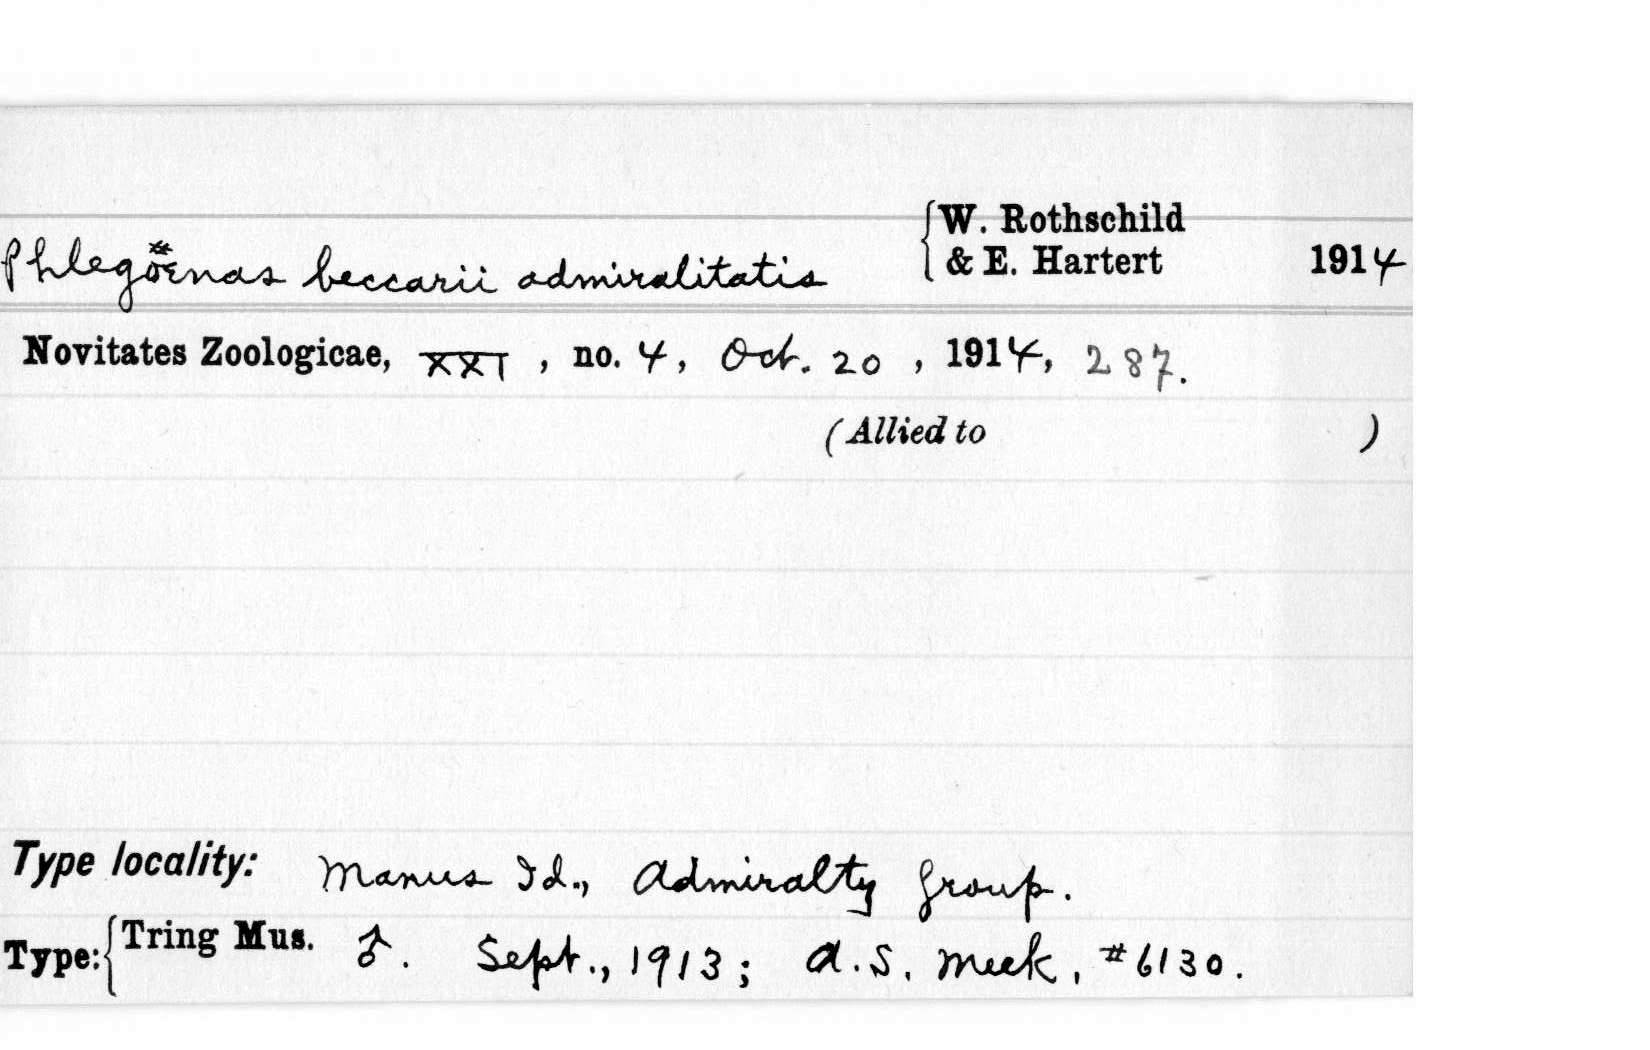 Phlegöenas beccarii admiralitatis { W. Rothschild & E. Hartert 1914
Novitates Zoologicae, XXI, no. 4, Oct. 20, 1914, 287.
(Allied to )
Type locality: Manus Id., Admiralty Group.
Type: { Tring Mus. ♂. Sept., 1913; A.S. Meek, #6130.